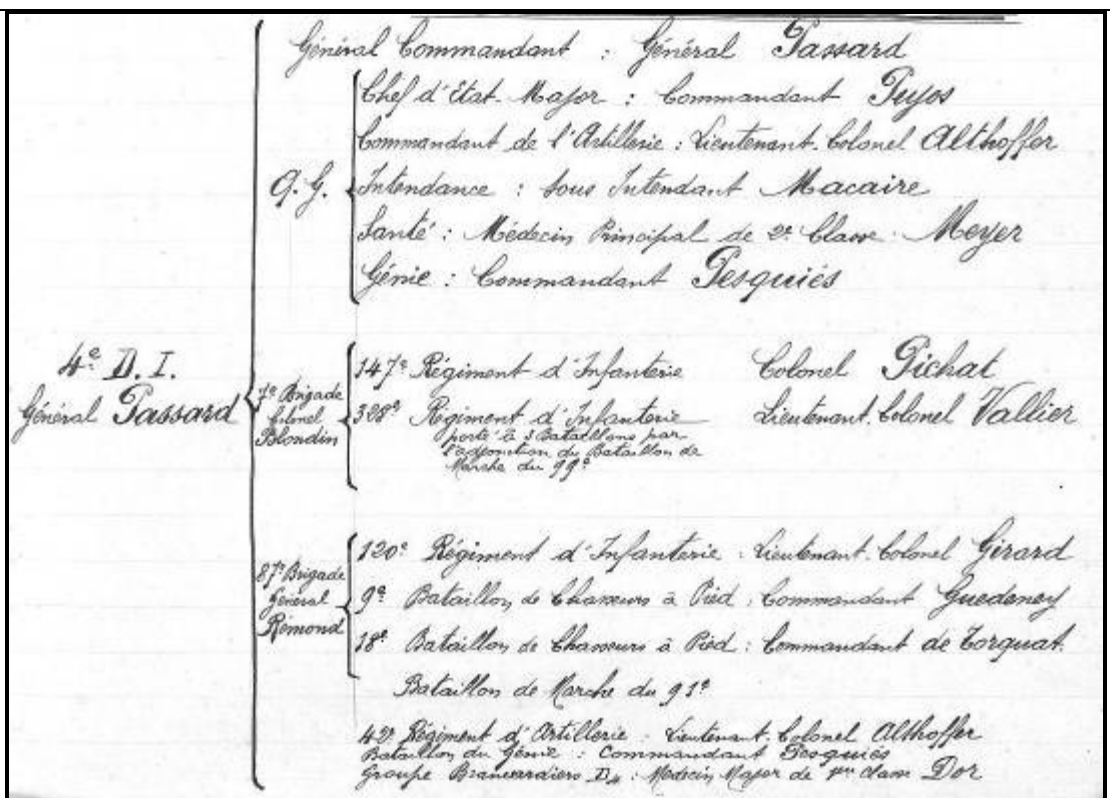 Général Commandant : Général Passard
Chef d'État-Major : Commandant Pujos
Commandant de l'Artillerie : Lieutenant-Colonel Althoffer
Q. G.
Intendance : Sous Intendant Macaire
Santé : Médecin Principal de 2e Classe : Meyer
Génie : Commandant Pesquiés
4e D. I.
Général Passard
7e Brigade
Colonel
Blondin
147e Régiment d'Infanterie Colonel Pichat
328e Régiment d'Infanterie Lieutenant-Colonel Vallier
porté à 3 Bataillons par
l'adjonction du Bataillon de
Marche du 99e
87e Brigade
Général
Rémond
120e Régiment d'Infanterie : Lieutenant-Colonel Girard
9e Bataillon de Chasseurs à Pied : Commandant Guedeney
18e Bataillon de Chasseurs à Pied : Commandant de Torquat.
Bataillon de Marche du 91e
42e Régiment d'Artillerie : Lieutenant-Colonel Althoffer
Bataillon du Génie : Commandant Pesquiés
Groupe Brancardiers D4 : Médecin Major de 1ère classe Dor